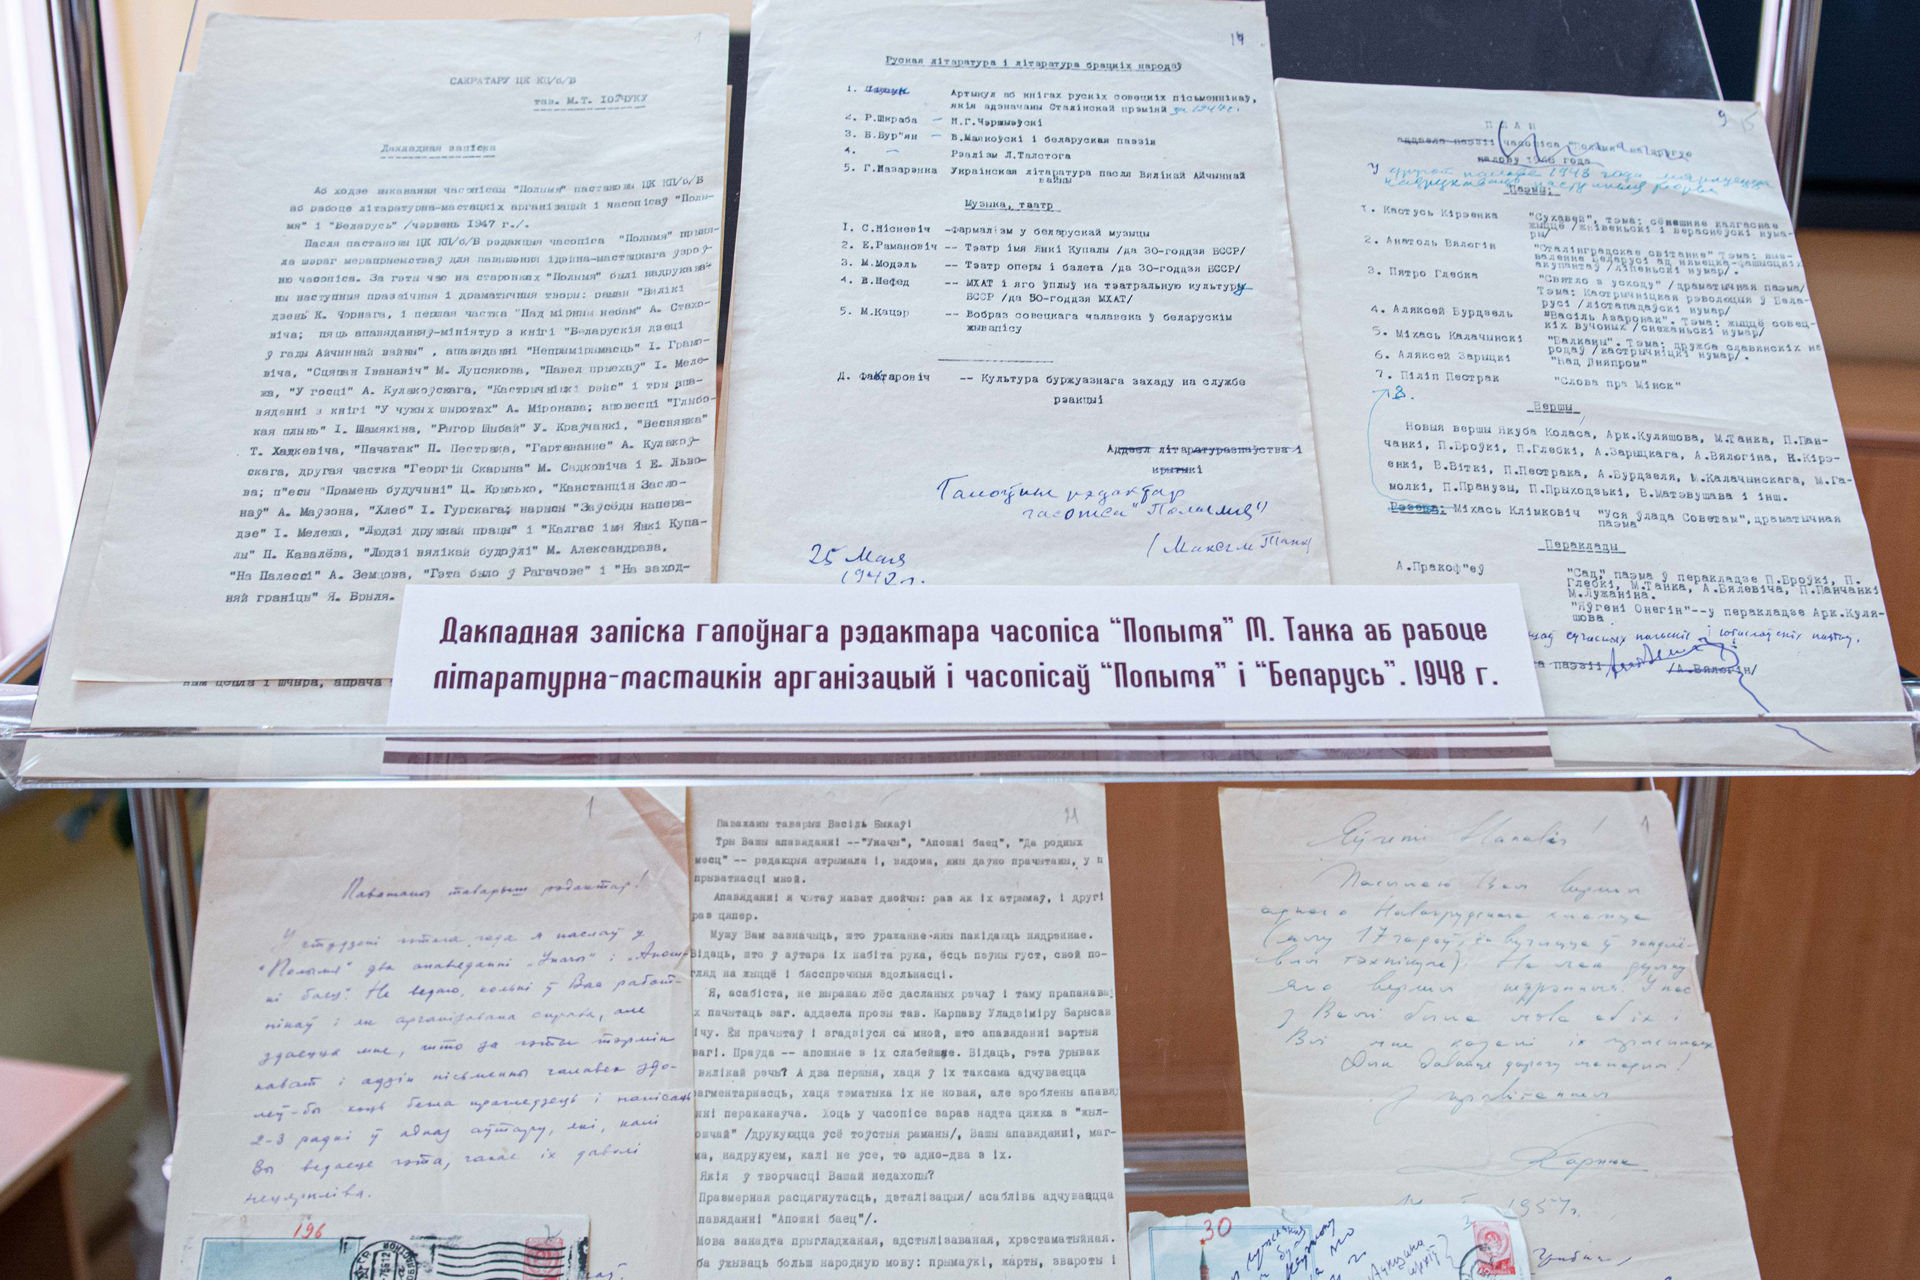 1
САКРАТАРУ ЦК КП/б/Б
тав. М.Т. ІОЎЧУКУ
Дакладная запіска
Аб ходзе выканання часопісам "Полымя" пастановы ЦК КП/б/Б
аб рабоце літаратурна-мастацкіх арганізацый і часопісаў "Полы-
мя" і "Беларусь" /чэрвень 1947 г./.
Пасля пастановы ЦК КП/б/Б рэдакцыя часопіса "Полымя" прыня-
ла шэраг мерапрыемстваў для павышэння ідэйна-мастацкага узроў-
ню часопіса. За гэты час на старонках "Полымя" былі надрукава-
ны наступныя празаічныя і драматычныя творы: раман "Вялікі
дзень" К. Чорнага, і першая частка "Пад мірным небам" А. Стахо-
віча; пяць апавяданняў-мініятур з кнігі "Беларускія дзеці
ў гады Айчыннай вайны", апавяданні "Непрымірымасць" І. Грамо-
віча, "Сцяпан Іванавіч" М. Лупсякова, "Павел прыехаў" І. Меле-
жа, "У госці" А. Кулакоўскага, "Кастрычніцкі рэйс" і тры апа-
вяданні з кнігі "У чужых шыротах" А. Міронава; аповесці "Глыбо-
кая плынь" І. Шамякіна, "Рыгор Шыбай" У. Краўчанкі, "Веснянка"
Т. Хадкевіча, "Пачатак" П. Пестрака, "Гартаванне" А. Кулакоў-
скага, другая частка "Георгій Скарына" М. Садковіча і Е. Льво-
ва; п'есы "Прамень будучыні" Ц. Крысько, "Канстанцін Засло-
наў" А. Маўзона, "Хлеб" І. Гурскага; нарысы "Заўсёды напера-
дзе" І. Мележа, "Людзі дружнай працы" і "Калгас імя Янкі Купа-
лы" П. Кавалёва, "Людзі вялікай будоўлі" М. Александрава,
"На Палессі" А. Земцова, "Гэта было ў Рагачове" і "На заход-
няй граніцы" Я. Брыля.
14
Руская літаратура і літаратура брацкіх народаў
1. Артыкул аб кнігах рускіх совецкіх пісьменнікаў,
якія адзначаны Сталінскай прэміяй
2. Р.Шкраба – Н.Г.Чэрнышэўскі
3. Б.Бур'ян – В.Маякоўскі і беларуская паэзія
4. – Рэалізм Л.Талстога
5. Г.Назарэнка Украінская літаратура пасля Вялікай Айчыннай
вайны
Музыка, тэатр
1. С.Нісневіч -Фармалізм у беларускай музыцы
2. Е.Рамановіч -- Тэатр імя Янкі Купалы /да 30-годдзя БССР/
3. М.Модэль -- Тэатр оперы і балета /да 30-годдзя БССР/
4. В.Нефед - МХАТ і яго ўплыў на тэатральную культуру
БССР /да 50-годдзя МХАТ/
5. М.Кацэр -- Вобраз совецкага чалавека ў беларускім
жывапісу
Д. Фактаровіч -- Культура буржуазнага захаду на службе
рэакцыі
Аддзел літаратуразнаўства і
крытыкі
Галоўны рэдактар
часопіса "Полымя"
/Максім Танк
25 мая
1948 г.
9 15
ПЛАН
аддзела паэзіі часопіса "Полымя" на другую
палову 1948 года
Паэмы:
1. Кастусь Кірэенка "Сухавей", тэма: сённяшняе калгаснае
жыццё /жнівеньскі і верасноўскі нума-
ры/
2. Анатоль Вялюгін "Сталінградскае світанне" Тэма: выз-
валенне Беларусі ад нямецка-фашысцкіх
акупантаў /ліпеньскі нумар/.
3. Пятро Глебка "Святло з усходу" /драматычная паэма/
Тэма: Кастрычніцкая рэволюцыя ў Бела-
русі /лістападаўскі нумар/
4. Аляксей Бурдзель "Васіль Азаронак". Тэма: жыццё совец-
кіх вучоных /снежаньскі нумар/
5. Міхась Калачынскі "Балканы". Тэма: дружба славянскіх на
родаў /кастрычніцкі нумар/.
6. Аляксей Зарыцкі "Над Дняпром"
7. Піліп Пестрак "Слова пра Мінск"
8.
Вершы
Новыя вершы Якуба Коласа, Арк.Куляшова, М.Танка, П.Пан-
чанкі, П.Броўкі, П.Глебкі, А.Зарыцкага, А.Вялюгіна, К.Кірэ-
енкі, В.Віткі, П.Пестрака, А.Бурдзеля, М.Калачынскага, М.Га-
молкі, П.Пранузы, П.Прыходзькі, В.Матэвушава і інш.
Рэзерв: Міхась Клімковіч "Уся ўлада Советам", драматычная
паэма
Пераклады
А.Пракоф'еў "Сад," паэма ў перакладзе П.Броўкі, П.
Глебкі, М.Танка, А.Бялевіча, П.Панчанкі
М.Лужаніна.
"Яўгені Онегін"--у перакладзе Арк.Куля-
шова
паэзіі /А.Вялюгін/
Дакладная запіска галоўнага рэдактара часопіса “Полымя” М. Танка аб рабоце
літаратурна-мастацкіх арганізацый і часопісаў “Полымя” і “Беларусь”. 1948 г.
1
Паважаны таварыш рэдактар!
У студзені гэтага года я паслаў у
"Полымя" два апавяданні "Уначы" і "Апош-
ні баец". Не ведаю, колькі ў Вас работ-
нікаў і як арганізавана справа, але
здаецца мне, што за гэты тэрмін
нават і адзін пісьменны чалавек здо-
леў-бы хоць бегла прагледзець і напісаць
2-3 радкі ў адказ аўтару, які, калі
Вы ведаеце гэта, чакае іх даволі
нецярпліва.
196
21
Паважаны таварыш Васіль Быкаў!
Тры Вашы апавяданні --"Уначы", "Апошні баец", "Да родных
месц" -- рэдакцыя атрымала і, вядома, яны даўно прачытаны, у п
прыватнасці мной.
Апавяданні я чытаў нават двойчы: раз як іх атрымаў, і другі
раз цяпер.
Мушу Вам зазначыць, што уражанне-яны пакідаюць нядрэннае.
Відаць, што ў аўтара іх набіта рука, ёсць пэўны густ, свой по-
гляд на жыццё і бясспрэчныя здольнасці.
Я, асабіста, не вырашаю лёс дасланых рэчаў і таму прапанаваў
х пачытаць заг. аддзела прозы тав. Карпаву Уладзіміру Барысав
ічу. Ён прачытаў і згадзіўся са мной, што апавяданні вартыя
вагі. Праўда -- апошняе з іх слабейшае. Відаць, гэта ўрывак
вялікай рэчы? А два першыя, хаця ў іх таксама адчуваецца
рагментарнасць, хаця тэматыка іх не новая, але зроблены апавя
нні пераканаўча. Хоць у часопісе зараз надта цяжка з "жыл-
ошчай" /друкуюцца ўсё тоўстыя раманы/, Вашы апавяданні, маг-
ма, надрукуем, калі не ўсе, то адно-два з іх.
Якія ў творчасці Вашай недахопы?
Празмерная расцягнутасць, дэталізацыя/ асабліва адчуваецца
апавяданні "Апошні баец"/.
Мова занадта прыгладжаная, адстылізаваная, хрэстаматыйная.
ба ужываць больш народную мову: прымаўкі, жарты, звароты і
1
Пасылаю Вам вершы
аднаго Навагрудскага хлопца
З прывітаннем
Карпюк
1957г.
30